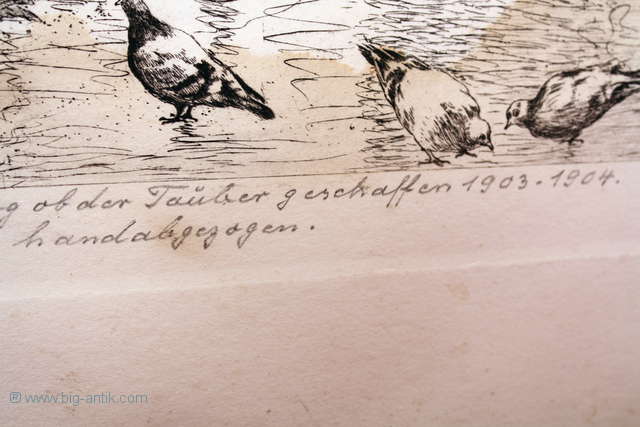 g ob der Tauber geschaffen 1903-1904.
handabgezogen.
® www.big-antik.com